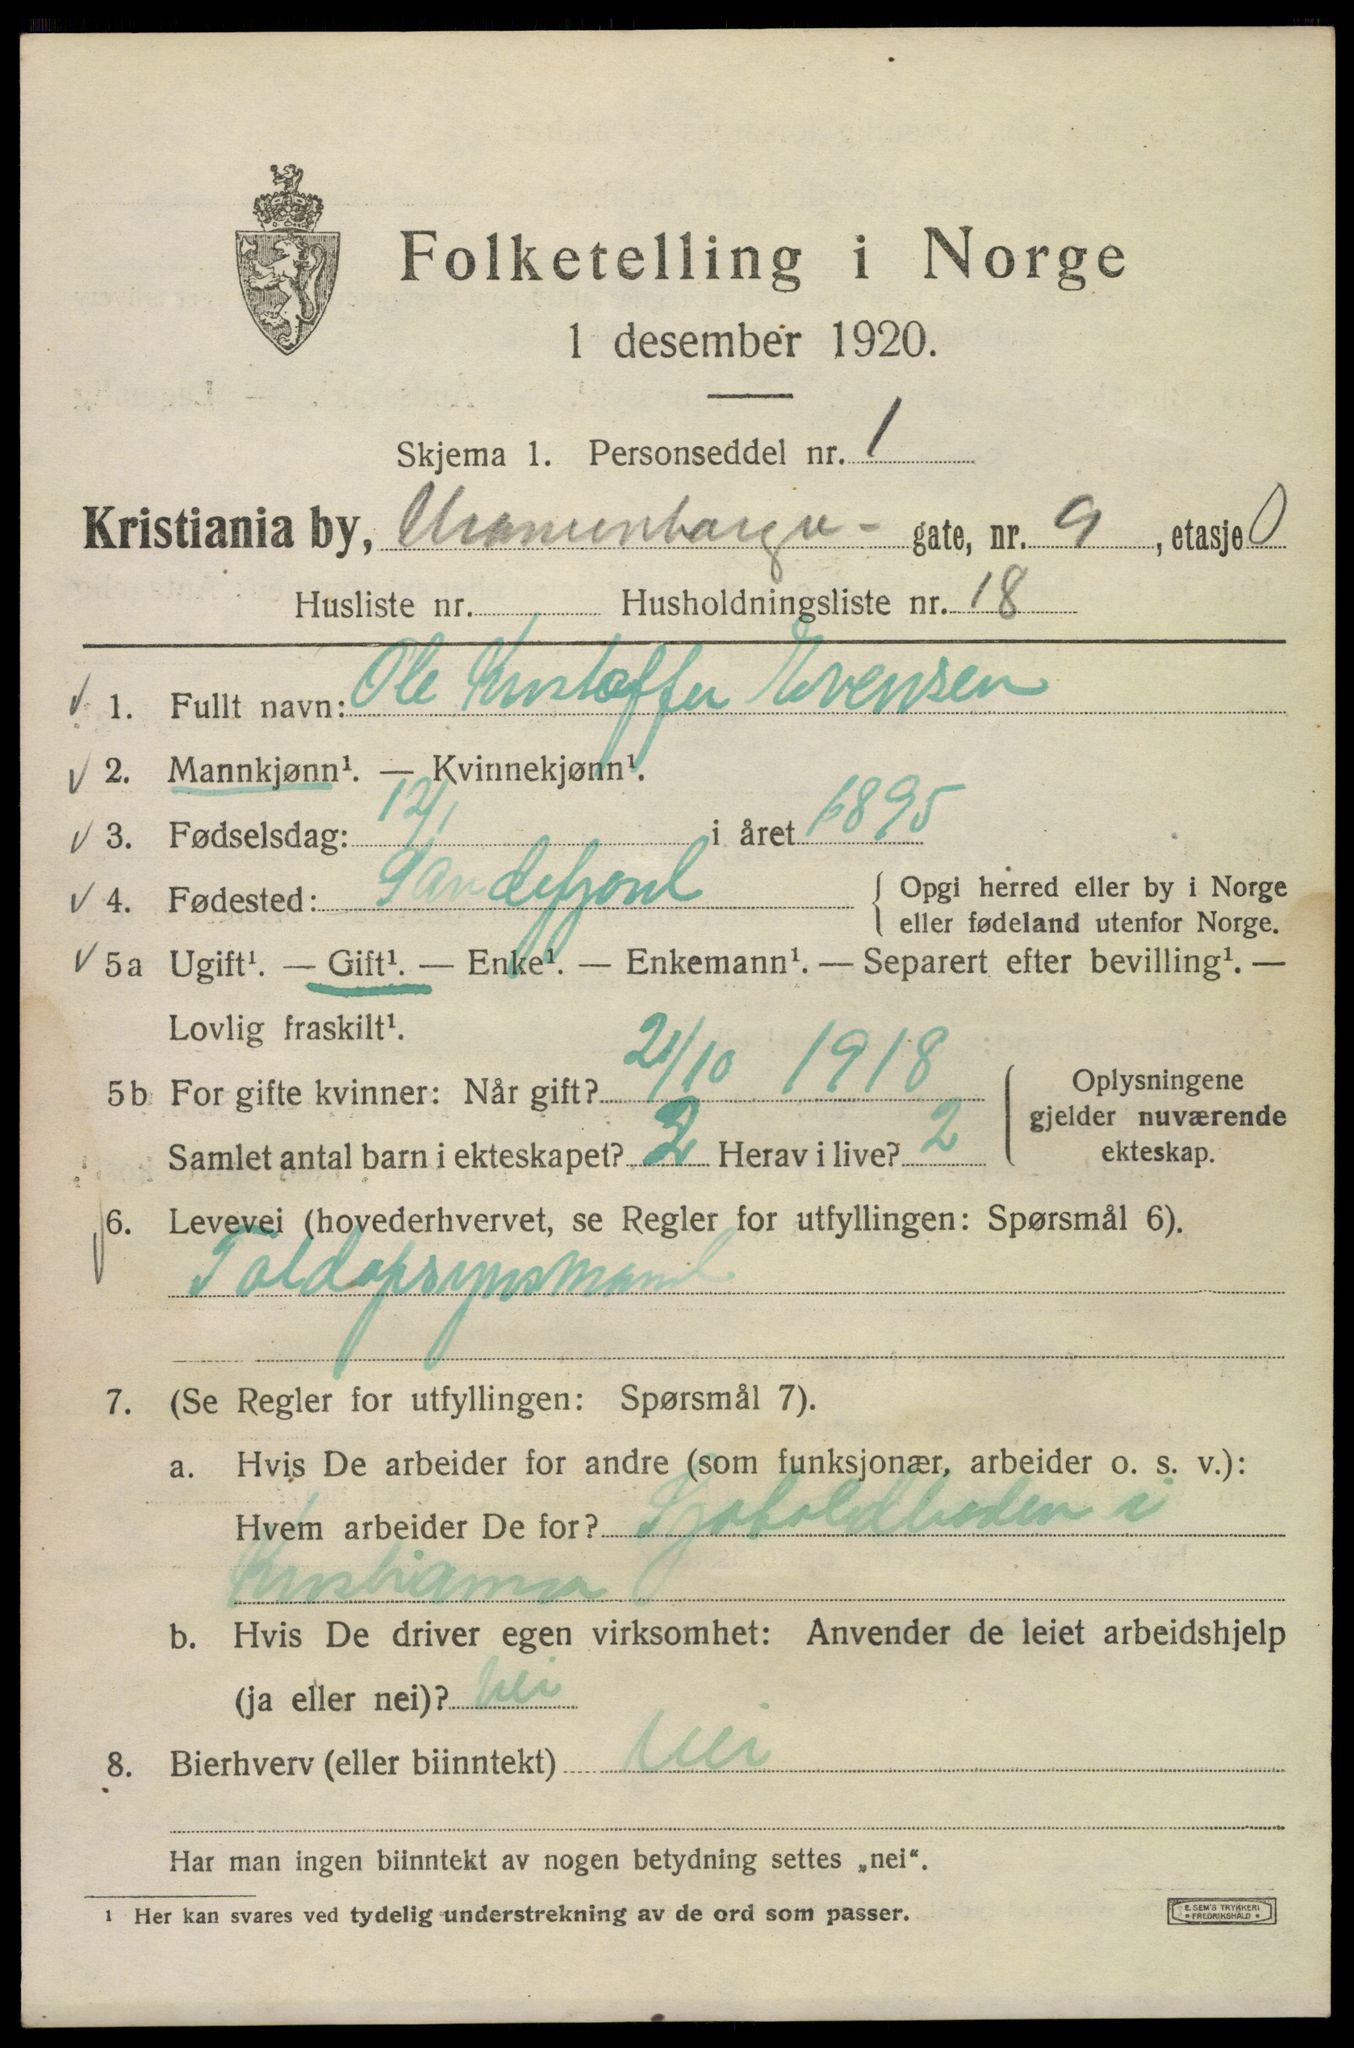 Folketelling i Norge
1 desember 1920.
Skjema 1. Personseddel nr. 1
Kristiania by, Uranienborgv - gate, nr. 9, etasje 0
Husliste nr. Husholdningsliste nr. 18
1. Fullt navn: Ole Kristoffer Evensen
2. Mannkjønn¹. — Kvinnekjønn¹.
3. Fødselsdag: 12/1 i året 1895
4. Fødested: Sandefjord { Opgi herred eller by i Norge
eller fødeland utenfor Norge.
5a Ugift¹. — Gift¹. — Enke¹. — Enkemann¹. — Separert efter bevilling¹. —
Lovlig fraskilt¹.
5b For gifte kvinner: Når gift? 21/10 1918
Samlet antal barn i ekteskapet? 2 Herav i live? 2
Oplysningene
gjelder nuværende
ekteskap.
6. Levevei (hovederhvervet, se Regler for utfyllingen: Spørsmål 6).
Toldopsynsmand
7. (Se Regler for utfyllingen: Spørsmål 7).
a. Hvis De arbeider for andre (som funksjonær, arbeider o. s. v.):
Hvem arbeider De for? Sjøtoldboden i
Kristiania
b. Hvis De driver egen virksomhet: Anvender de leiet arbeidshjelp
(ja eller nei)? Nei
8. Bierhverv (eller biinntekt) Nei
Har man ingen biinntekt av nogen betydning settes „nei“.
¹ Her kan svares ved tydelig understrekning av de ord som passer.
E. SEM'S TRYKKERI
FREDRIKSHALD